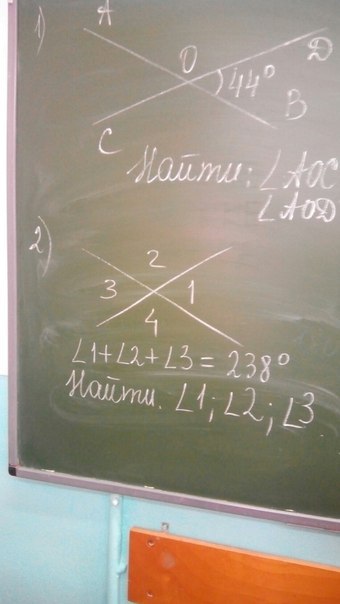 1)
A
O
D
44°
B
C
Найти: ∠AOC
∠AOD
2)
2
3 1
4
∠1+∠2+∠3 = 238°
Найти. ∠1; ∠2; ∠3.